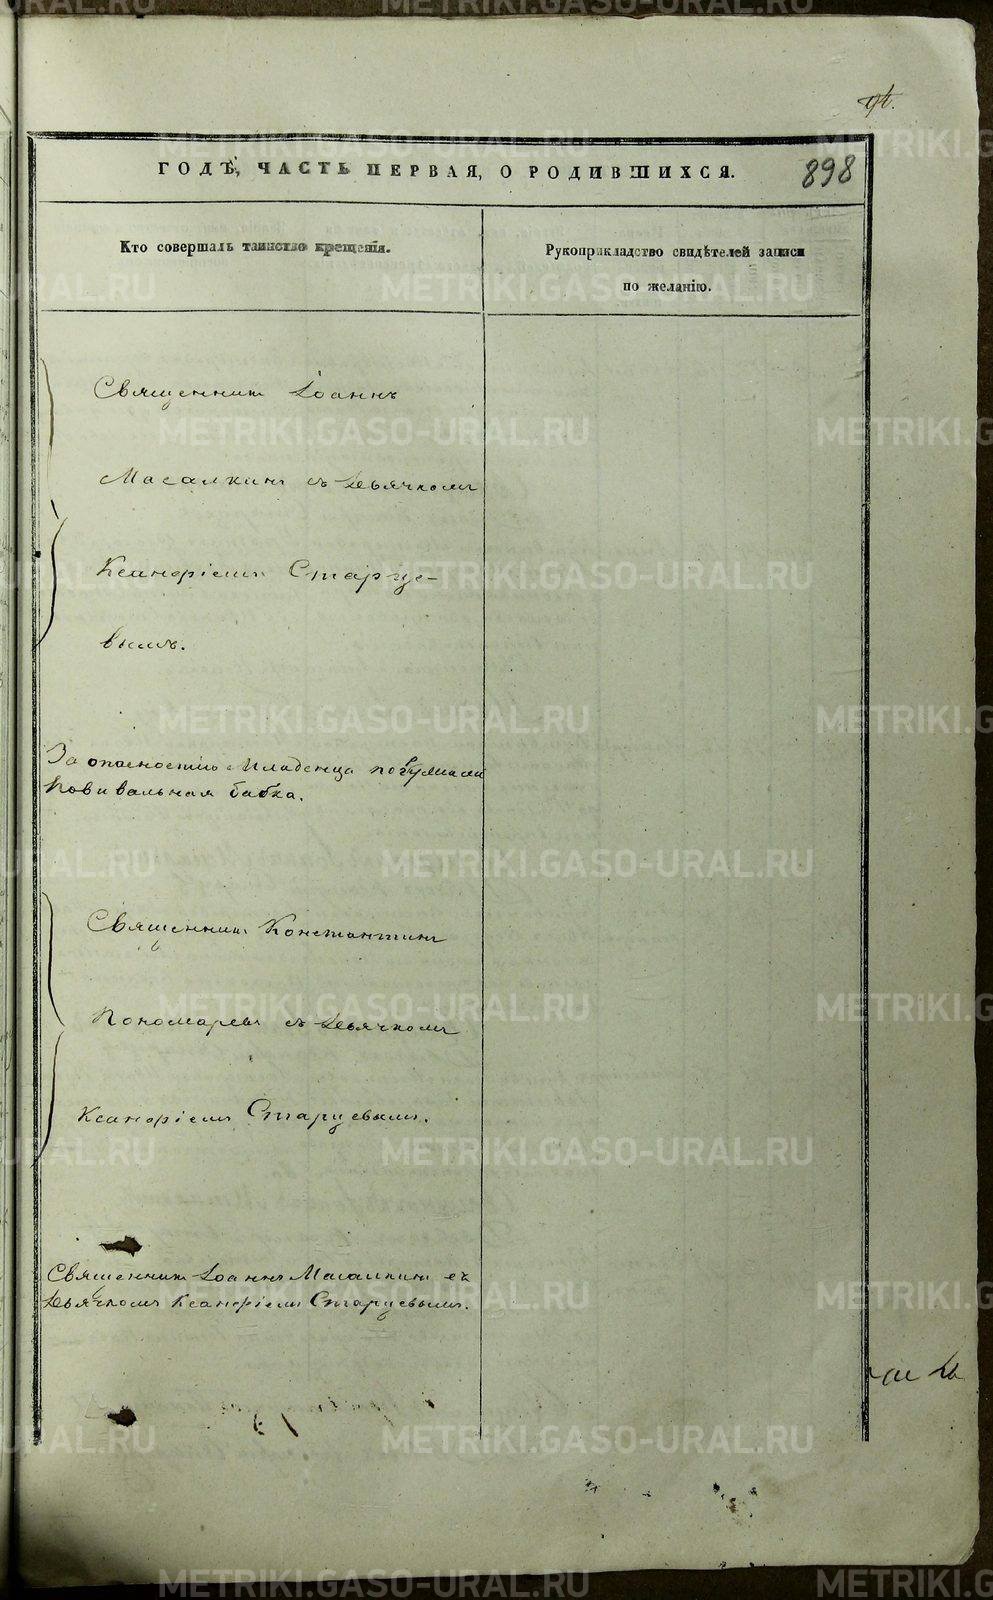 94.
898
ГОДѢ, ЧАСТЬ ПЕРВАЯ, О РОДИВШИХСЯ.
Кто совершалъ таинство крещенія.
Рукоприкладство свидѣтелей записи
по желанію.
Священникъ Іоаннъ
Масалкинъ съ Дьячкомъ
Ксанфіемъ Старце-
вымъ.
За опасностію младенца погружала
повивальная бабка.
Священникъ Константинъ
Пономаревъ съ Дьячкомъ
Ксанфіемъ Старцевымъ.
Священникъ Іоаннъ Масалкинъ съ
Дьячкомъ Ксанфіемъ Старцевымъ.
METRIKI.GASO-URAL.RU